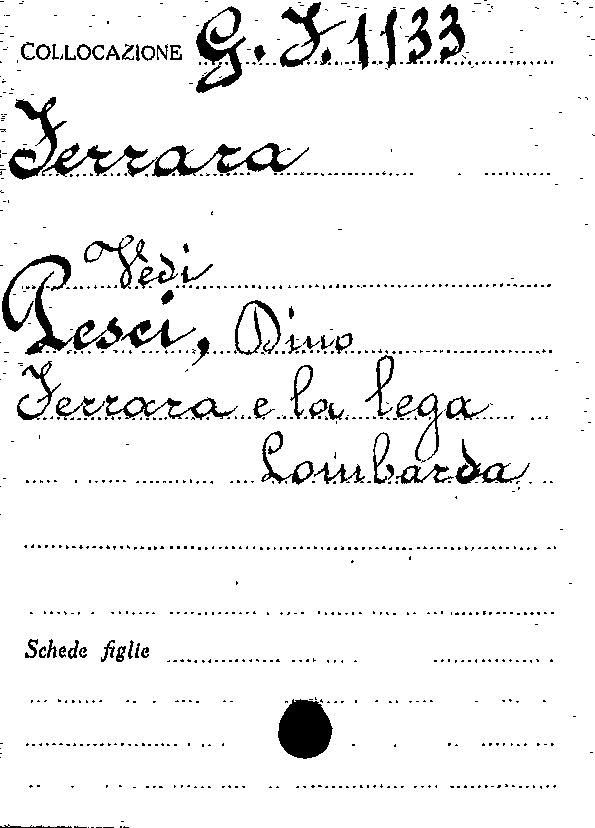 COLLOCAZIONE G. F. 1133
Ferrara
Vedi
Pesci, Dino
Ferrara e la lega
Lombarda
Schede figlie